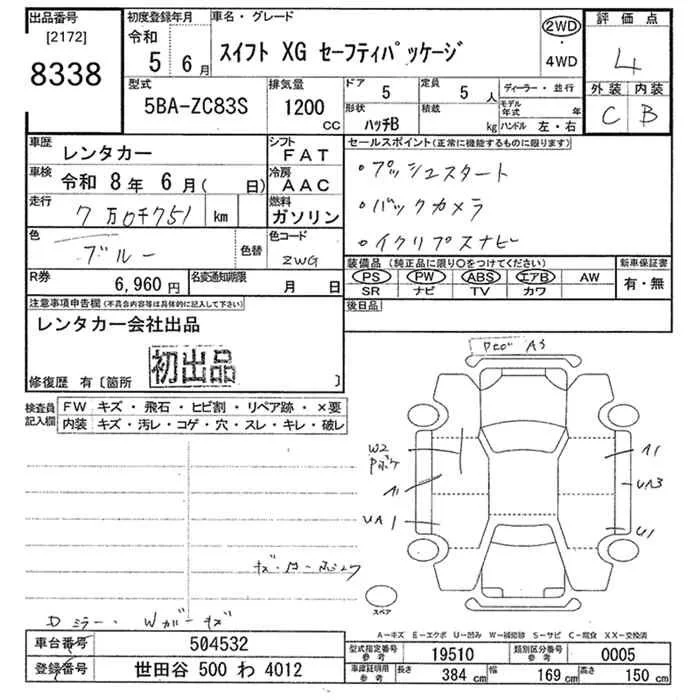 出品番号
[2172]
8338
初度登録年月
令和
5 6月
車名・グレード
スイフト XG セーフティパッケージ
2WD
・
4WD
評価点
4
外装 内装
C B
型式
5BA-ZC83S
排気量
1200
CC
ドア
5
定員
5 人
形状
ハッチB
積載
kg
ディーラー・並行
モデル年式 年
ハンドル 左・右
車歴
レンタカー
シフト
FAT
車検
令和 8年 6月( 日)
冷房
AAC
走行
7万0千751 km
燃料
ガソリン
色
ブルー
色替
色コード
ZWG
R券
6,960円
名変通知期限
月 日
セールスポイント(正常に機能するものに限ります)
・プッシュスタート
・バックカメラ
・イクリプスナビ
装備品(純正品に限り○をつけてください)
PS PW ABS エアB AW
SR ナビ TV カワ
新車保証書
有・無
後日品
注意事項申告欄(不具合内容等は具体的に記入して下さい)
レンタカー会社出品
初出品
修復歴 有〔箇所 〕
検査員記入欄
FW キズ・飛石・ヒビ割・リペア跡・×要
内装 キズ・汚レ・コゲ・穴・スレ・キレ・破レ
A3
W2
A1
A1
UA3
UA1
U1
スペア
Dミラー・Wガーキズ
A−キズ E−エクボ U−凹み W−補修跡 S−サビ C−腐食 XX−交換済
車台番号
504532
登録番号
世田谷 500 わ 4012
型式指定番号
参考
19510
類別区分番号
参考
0005
車庫証明用
参考
長さ
384 cm
幅
169 cm
高さ
150 cm